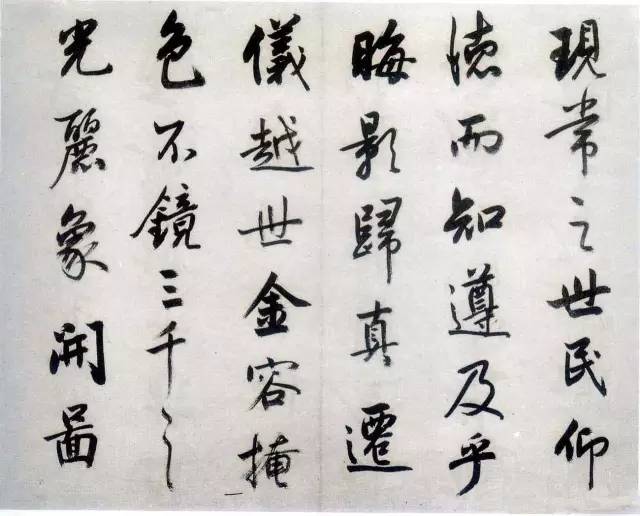 現常之世民仰
德而知遵及乎
晦影歸真遷
儀越世金容掩
色不鏡三千之
光麗象開圖